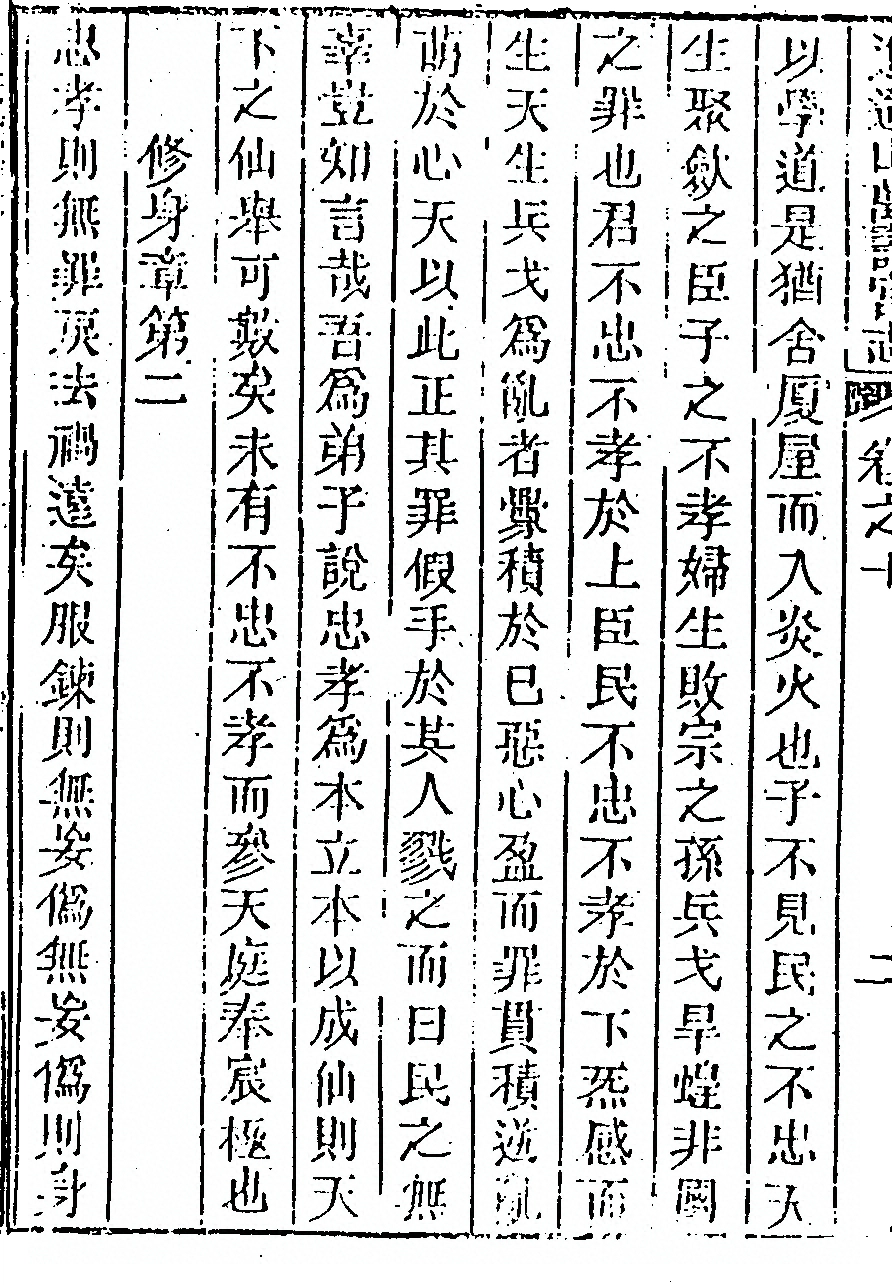 逍遙山萬壽宮志 卷之十 二
以學道是猶舍厦屋而入炎火也子不見民之不忠天
生聚斂之臣子之不孝婦生敗宗之孫兵戈旱蝗非國
之罪也君不忠不孝於上臣民不忠不孝於下炁感而
生天生兵戈爲亂者釁積於已惡心盈而罪貫積逆亂
萌於心天以此正其罪假手於其人戮之而曰民之無
辜豈知言哉吾爲弟子說忠孝爲本立本以成仙則天
下之仙舉可數矣未有不忠不孝而參天庭奉宸極也
修身章第二
忠孝則無罪戾去禍遠矣服鍊則無妄僞無妄僞則身